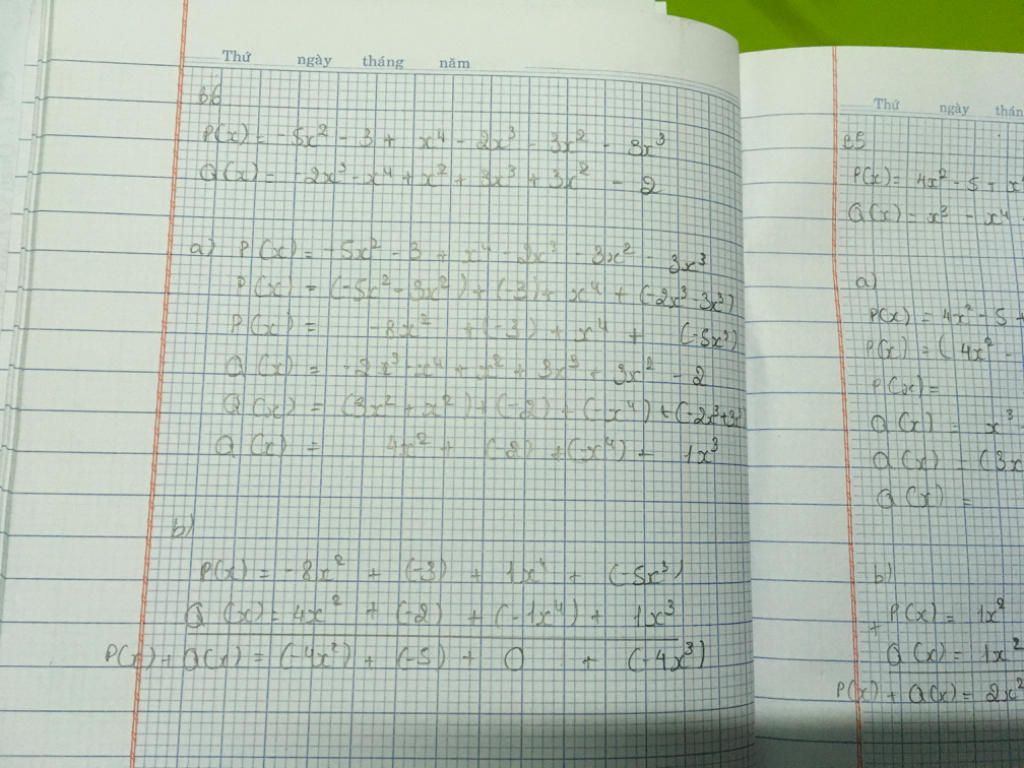 Thứ ngày tháng năm
B6
P(x) = -5x² - 3 + x⁴ - 2x³ - 3x² - 3x³
Q(x) = -2x³ - x⁴ + x² + 3x³ + 3x² - 2
a) P(x) = -5x² - 3 + x⁴ - 2x³ - 3x² - 3x³
P(x) = (-5x² - 3x²) + (-3) + x⁴ + (-2x³ - 3x³)
P(x) = -8x² + (-3) + x⁴ + (-5x³)
Q(x) = -2x³ - x⁴ + x² + 3x³ + 3x² - 2
Q(x) = (3x² + x²) + (-2) + (-x⁴) + (-2x³ + 3x³)
Q(x) = 4x² + (-2) + (-x⁴) + 1x³
b)
P(x) = -8x² + (-3) + 1x⁴ + (-5x³)
Q(x) = 4x² + (-2) + (-1x⁴) + 1x³
P(x) + Q(x) = (-4x²) + (-5) + 0 + (-4x³)
Thứ ngày thán
B5
P(x) = 4x² - 5 + x⁴
Q(x) = x³ - x⁴
a)
P(x) = 4x² - 5 +
P(x) = (4x² -
P(x) =
Q(x) = x³
Q(x) = (3x
Q(x) =
b)
+ P(x) = 1x²
Q(x) = 1x²
P(x) + Q(x) = 2x²